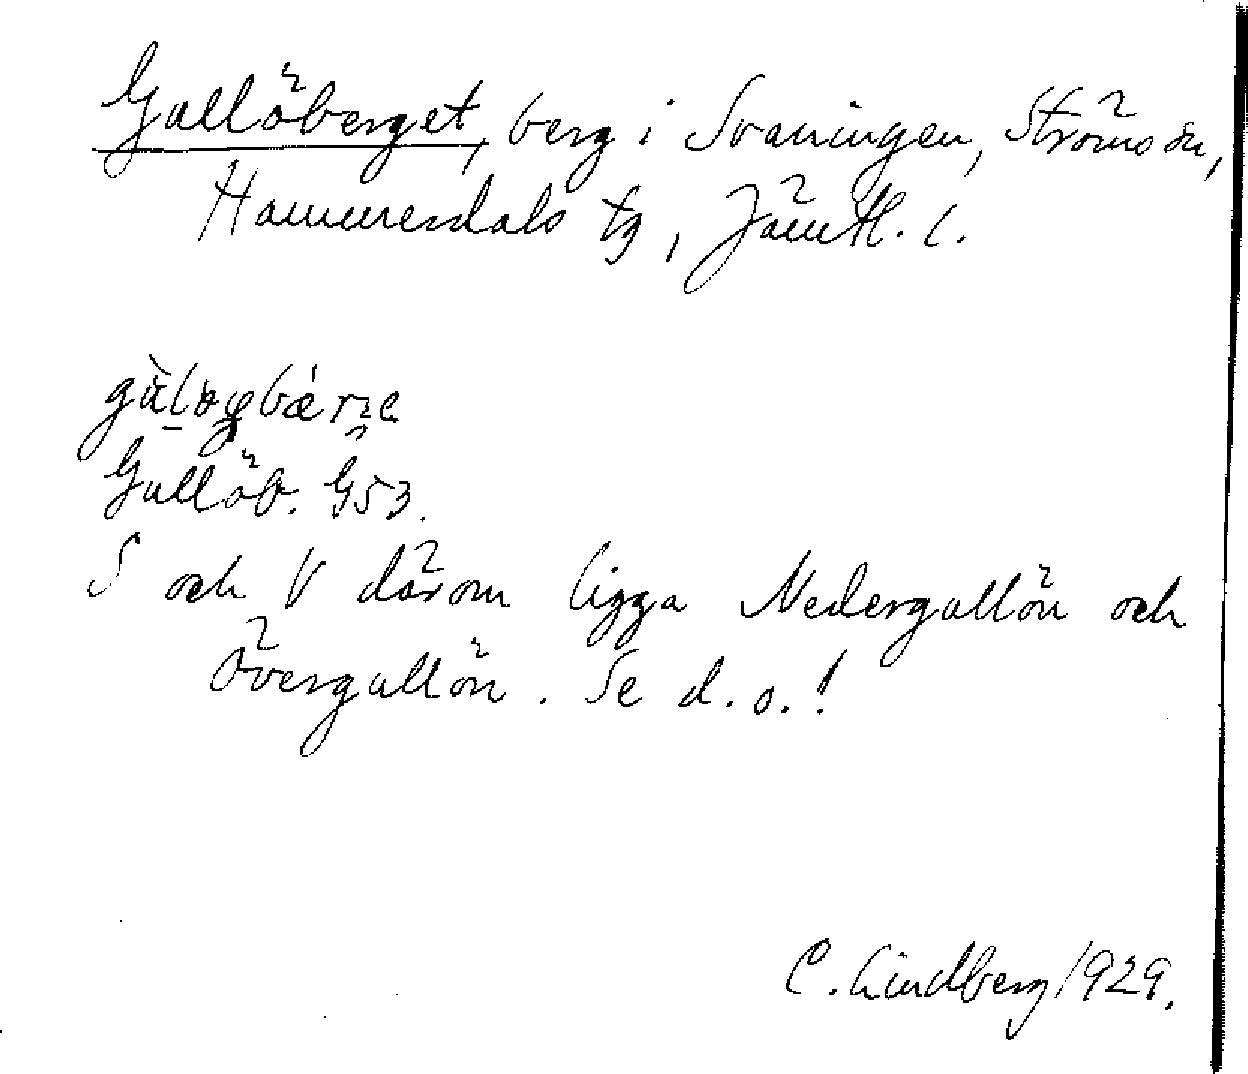 Gallöberget, berg i Svaningen, Ströms sn,
Hammerdals tg, Jämtl. l.
Gallöb. G53.
S och V därom ligga Nedergallön och
Övergallön. Se d. o.!
C. Lindberg 1929.